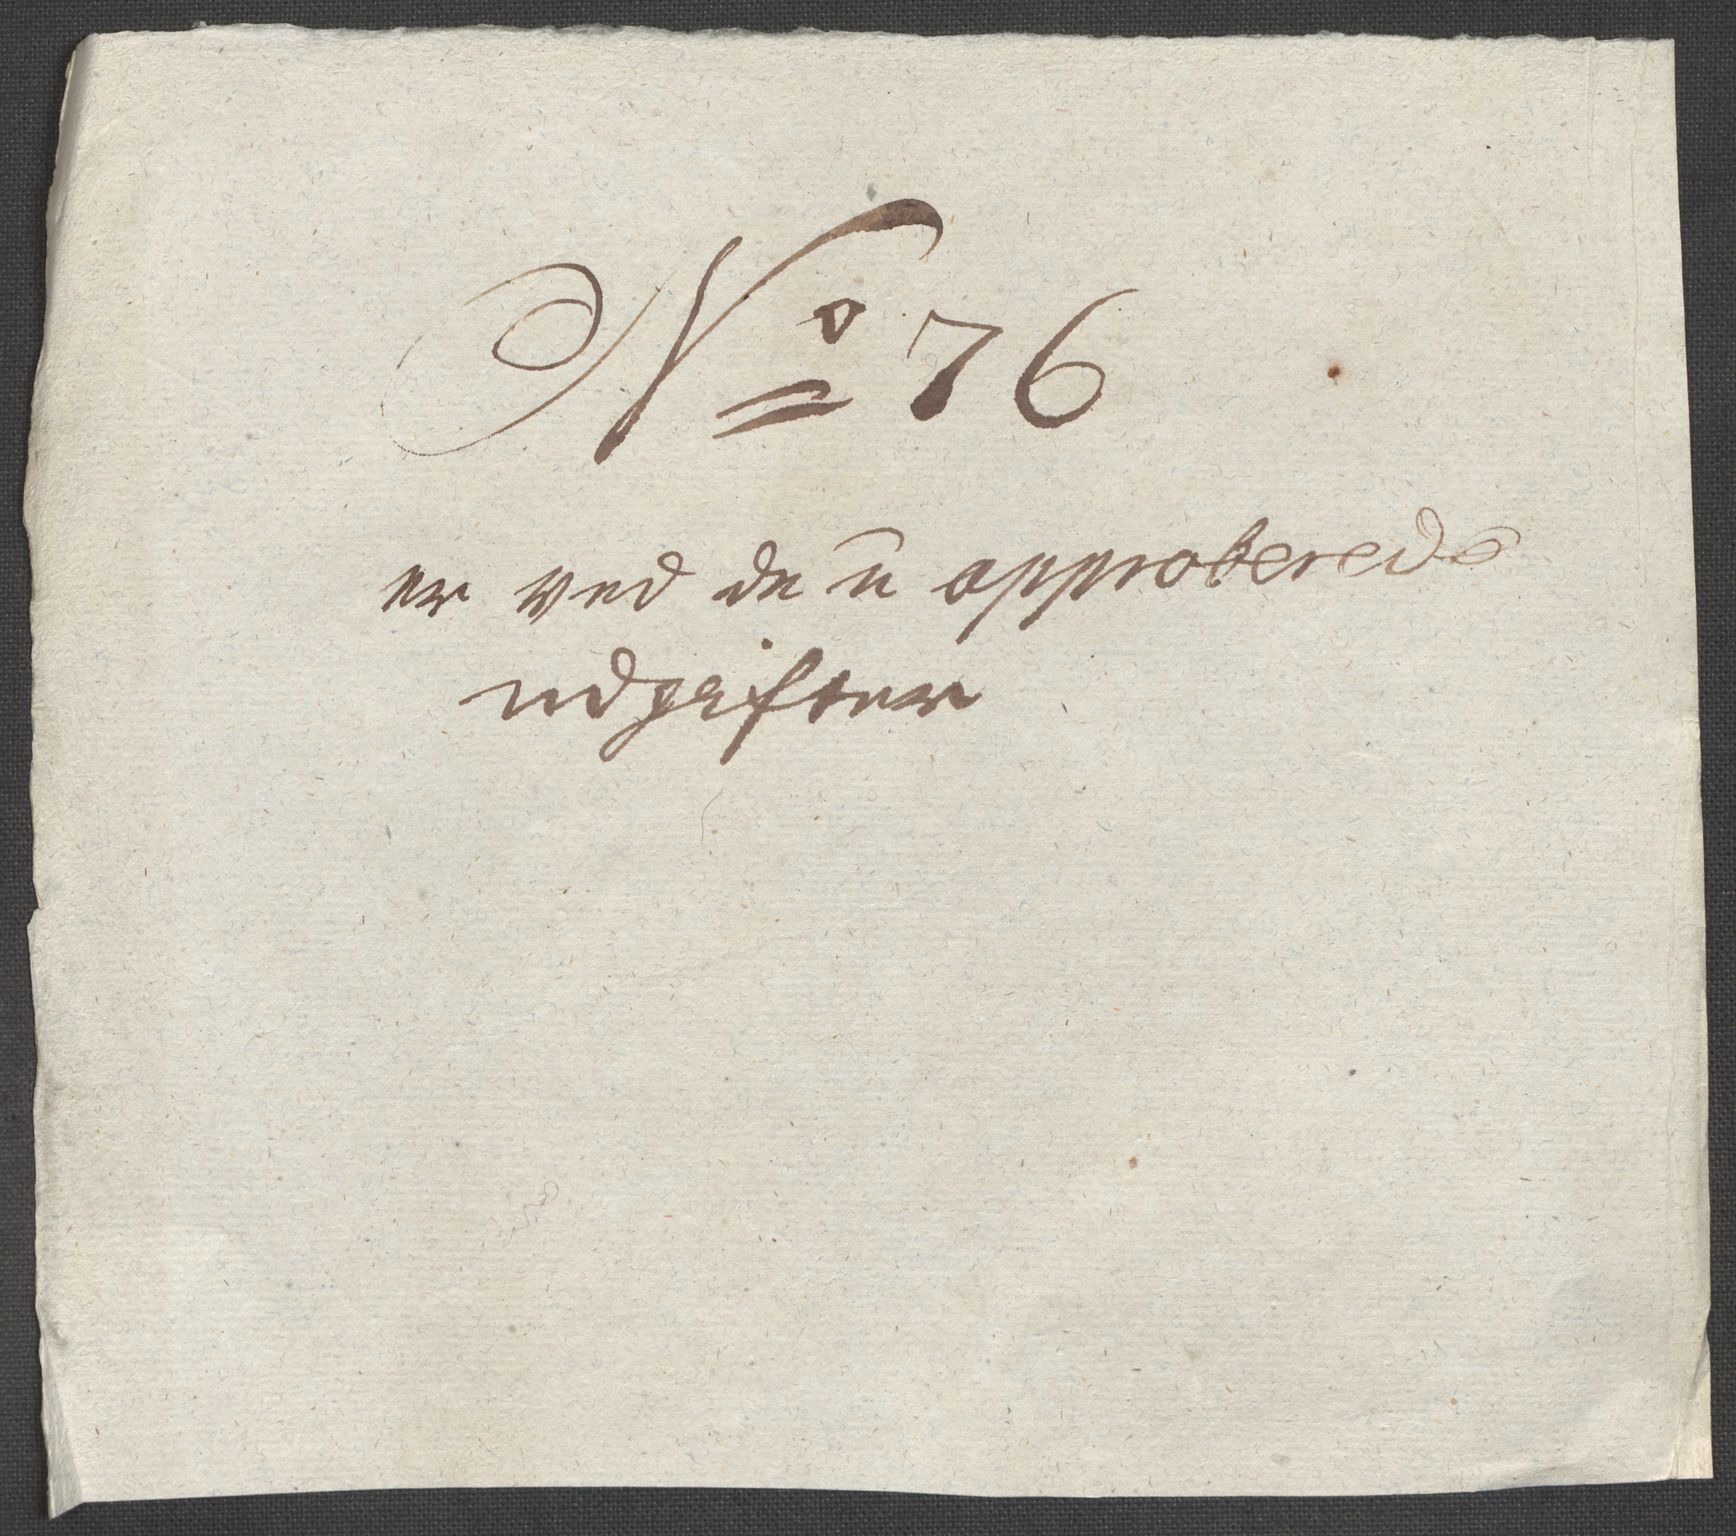 No 76
er ved de ū approberede
udgifter